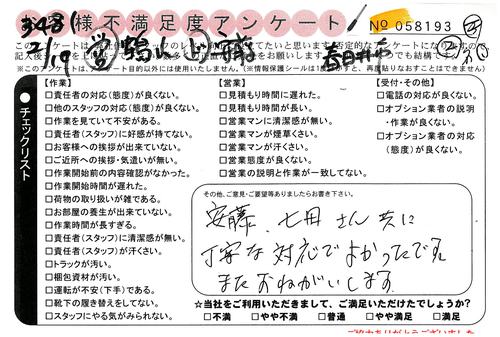 お客様不満足度アンケート
No 058193
2/19
春日井店
※このアンケートは、アンケート目的以外には使用いたしません。
チェックリスト
【作業】
□責任者の対応(態度)が良くない。
□他のスタッフの対応(態度)が良くない。
□作業を見ていて不安がある。
□責任者(スタッフ)に好感が持てない。
□お客様への挨拶が出来ていない。
□ご近所への挨拶・気遣いが無い。
□作業開始前の内容確認がなかった。
□作業開始時間が遅れた。
□荷物の取り扱いが雑である。
□お部屋の養生が出来ていない。
□作業時間が長すぎる。
□責任者(スタッフ)に清潔感が無い。
□責任者(スタッフ)が汗くさい。
□トラックが汚い。
□梱包資材が汚い。
□運転が不安(下手)である。
□靴下の履き替えをしてない。
□スタッフにやる気がみられない。
【営業】
□見積もり時間に遅れた。
□見積もり時間が長い。
□営業マンに清潔感が無い。
□営業マンが煙草くさい。
□営業マンが汗くさい。
□営業態度が良くない。
□営業の説明と作業が一致してない。
【受付・その他】
□電話の対応が良くない。
□オプション業者の説明・作業が良くない。
□オプション業者の対応(態度)が良くない。
その他、ご意見・ご要望等ありましたらお書き下さい。
安藤、七田さん共に
丁寧な対応でよかったです。
またおねがいします。
☆当社をご利用いただきまして、ご満足いただけたでしょうか?
□不満 □やや不満 □普通 □やや満足 □満足
ご協力ありがとうございました